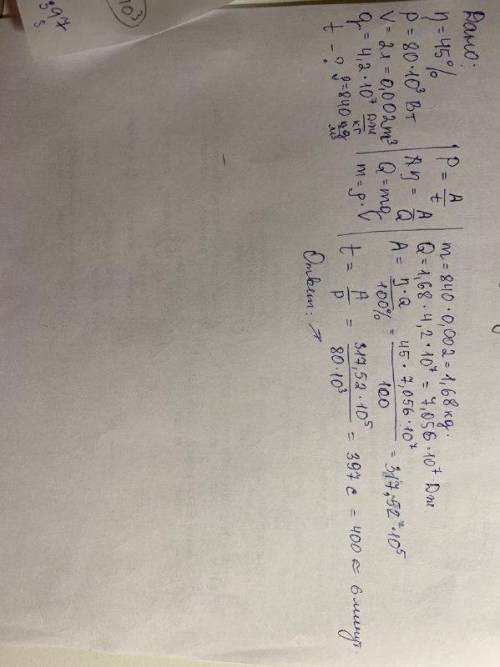 Дано:
η = 45%
P = 80·10³ Вт
V = 2л = 0,002 m³
q = 4,2·10⁷ Дж/кг
t - ? ρ = 840 кг/м³
P = A/t
η = A/Q
Q = mq
m = ρ·V
m = 840·0,002 = 1,68 kg.
Q = 1,68·4,2·10⁷ = 7,056·10⁷ Дж
A = η·Q/100% = 45·7,056·10⁷/100 = 317,52·10⁵
t = A/P = 317,52·10⁵/80·10³ = 397 c = 400 ≈ 6 минут.
Ответ: ↗
397
s.